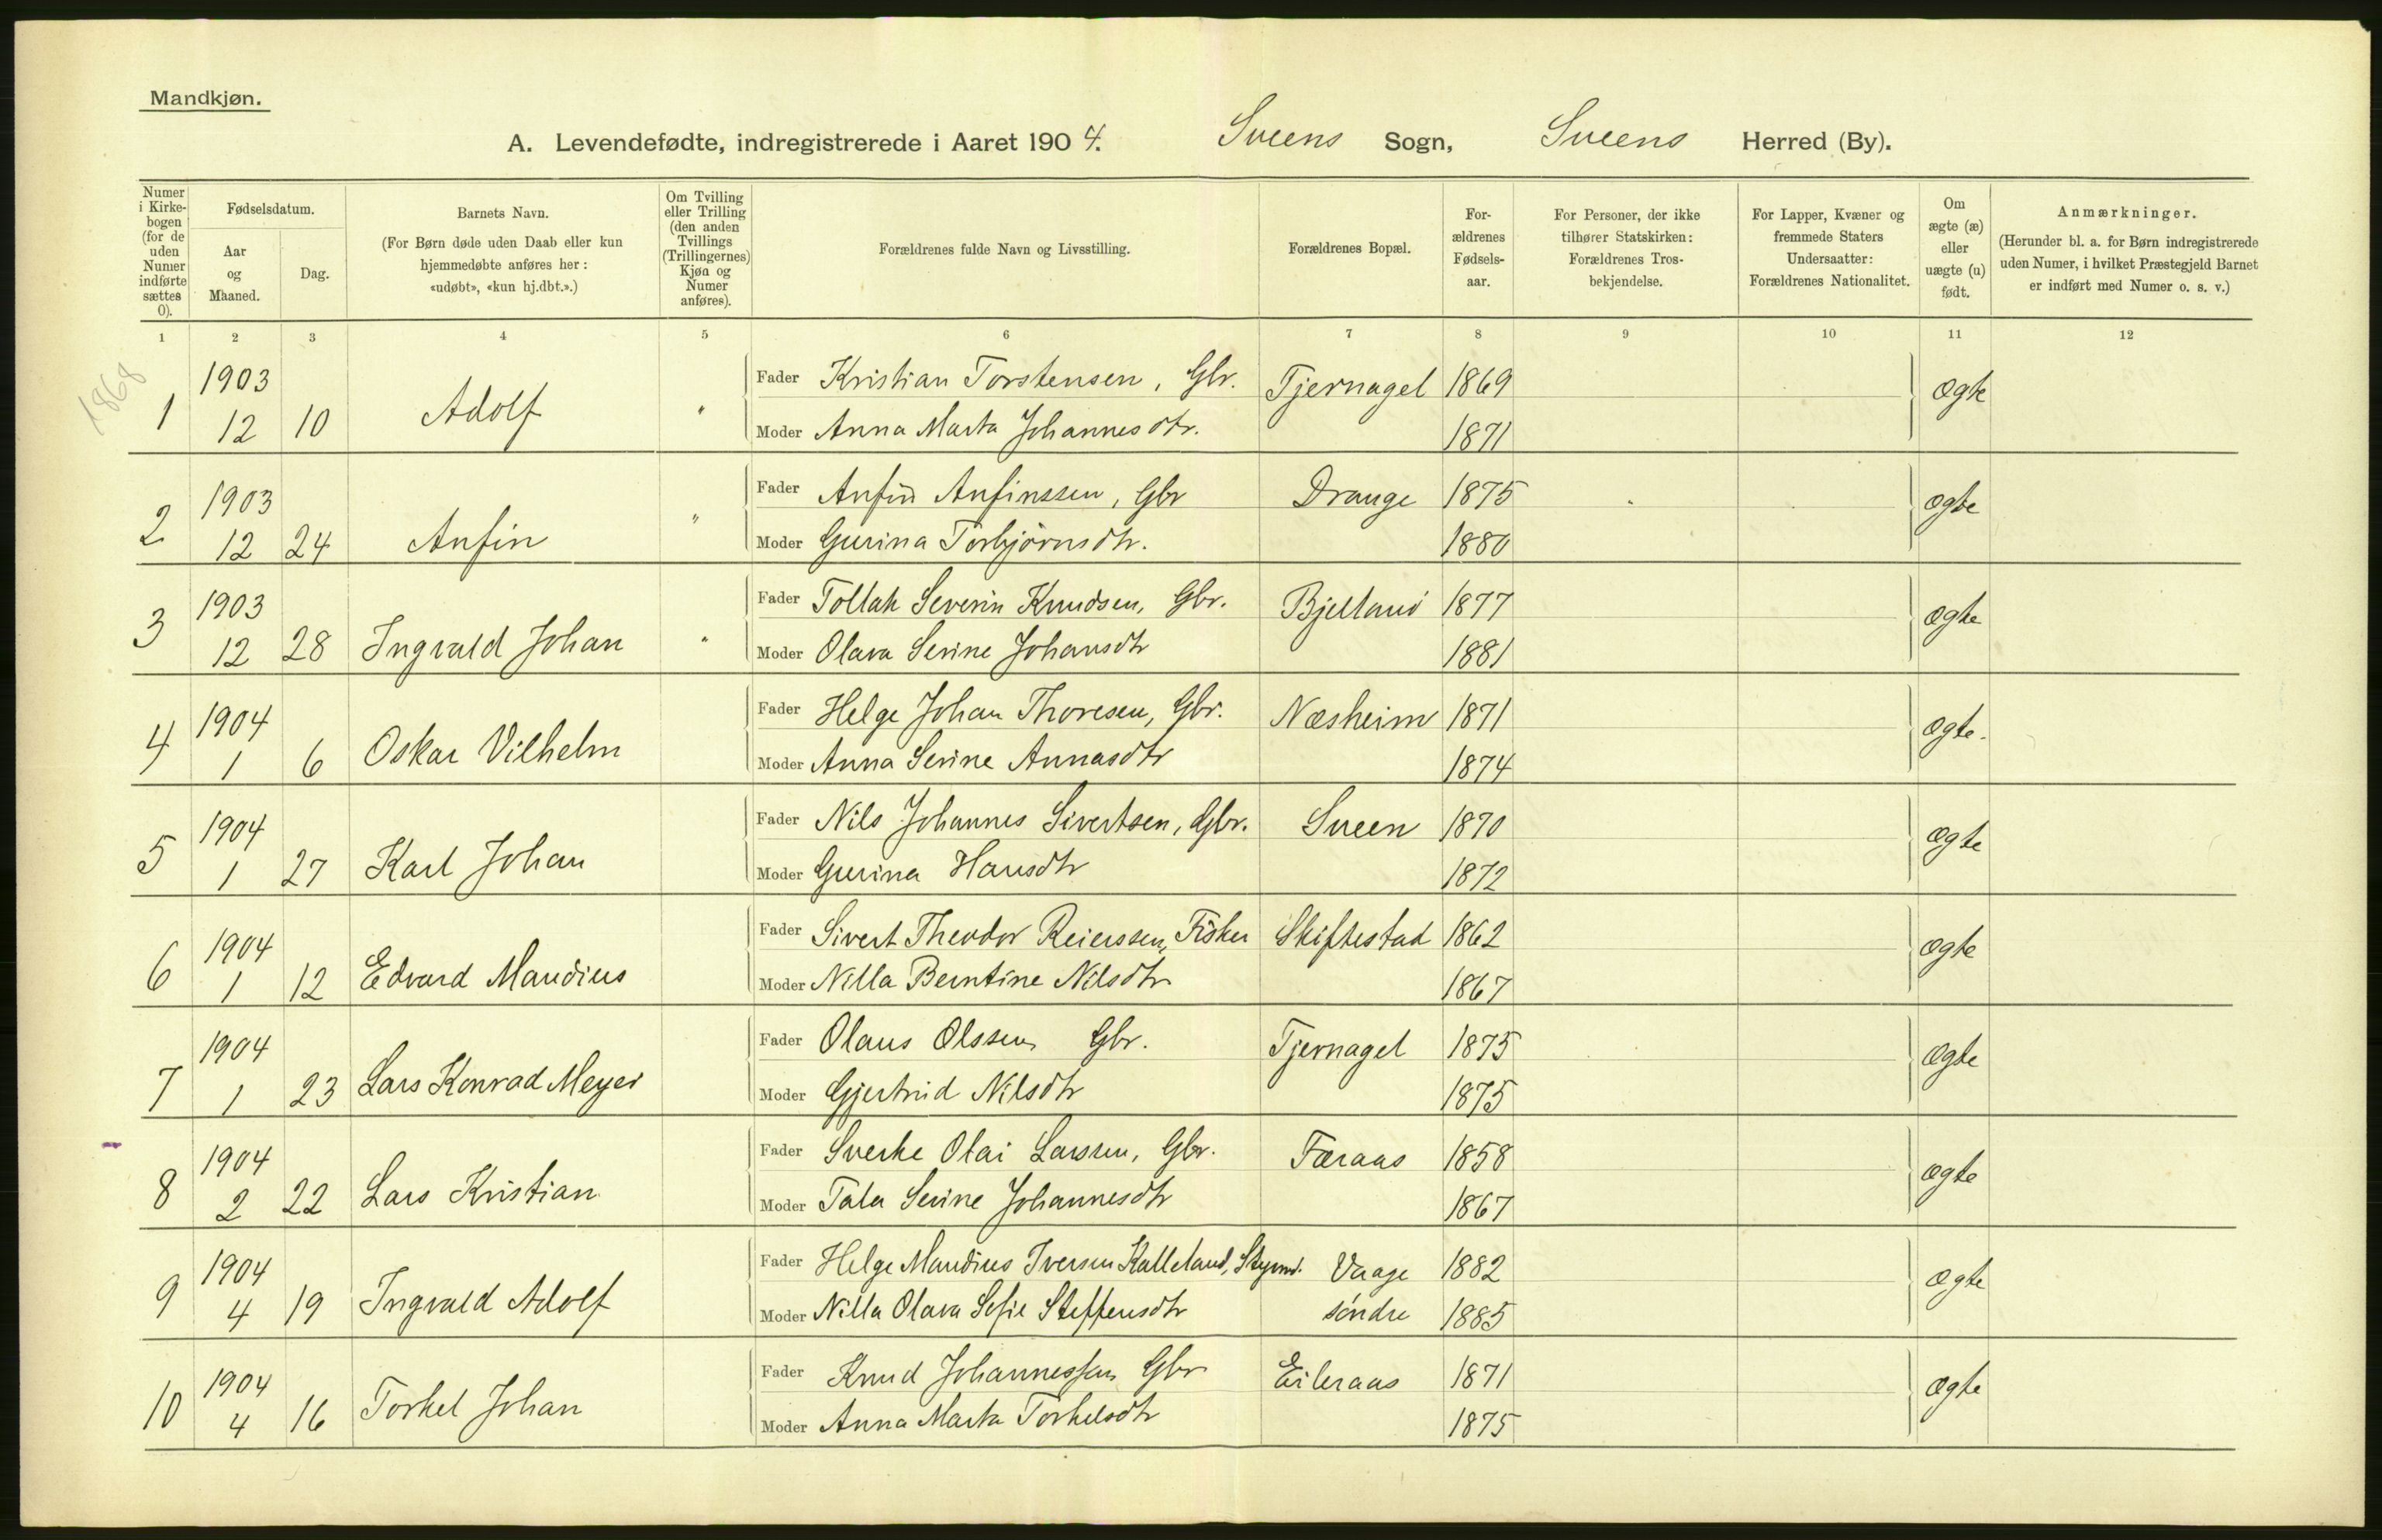 Mandkjøn.
A. Levendefødte, indregistrerede i Aaret 1904. Sveens Sogn, Sveens Herred (By).
Numer i Kirkebogen (for de uden Numer indførte sættes 0).
Fødselsdatum.
Aar og Maaned.
Dag.
Barnets Navn.
(For Børn døde uden Daab eller kun hjemmedøbte anføres her: «udøbt», «kun hj.dbt.».)
Om Tvilling eller Trilling (den anden Tvillings (Trillingernes) Kjøn og Numer anføres).
Forældrenes fulde Navn og Livsstilling.
Forældrenes Bopæl.
Forældrenes Fødselsaar.
For Personer, der ikke tilhører Statskirken: Forældrenes Trosbekjendelse.
For Lapper, Kvæner og fremmede Staters Undersaatter: Forældrenes Nationalitet.
Om ægte (æ) eller uægte (u) født.
Anmærkninger.
(Herunder bl. a. for Børn indregistrerede uden Numer, i hvilket Præstegjeld Barnet er indført med Numer o. s. v.)
1 2 3 4 5 6 7 8 9 10 11 12
1868
1 1903 12 10 Adolf " Fader Kristian Torstensen, Gbr. Tjernagel 1869 ægte
Moder Anna Marta Johannesdtr. 1871
2 1903 12 24 Anfin " Fader Anfin Anfinssen, Gbr Drange 1875 ægte
Moder Gurina Torbjörnsdtr. 1880
3 1903 12 28 Ingvald Johan " Fader Tollak Severin Knudsen, Gbr. Bjelland 1877 ægte
Moder Olava Serine Johansdtr 1881
4 1904 1 6 Oskar Vilhelm Fader Helge Johan Thoresen, Gbr. Næsheim 1871 ægte.
Moder Anna Serine Annasdtr 1874
5 1904 1 27 Karl Johan Fader Nils Johannes Sivertsen, Gbr. Sveen 1870 ægte
Moder Gurina Hansdtr 1872
6 1904 1 12 Edvard Mandius Fader Sivert Theodor Reierssen, Fisker Skiftestad 1862 ægte
Moder Nilla Berntine Nilsdtr 1867
7 1904 1 23 Lars Konrad Meyer Fader Olaus Olssen Gbr. Tjernagel 1875 ægte
Moder Gjertrud Nilsdtr 1875
8 1904 2 22 Lars Kristian Fader Sverke Olai Larssen, Gbr. Færaas 1858 ægte
Moder Tala Serine Johannesdtr 1867
9 1904 4 19 Ingvald Adolf Fader Helge Mandius Iversen Kalleland, Stymd. Vaage 1882 ægte
Moder Nilla Olava Sofie Steffensdtr söndre 1885
10 1904 4 16 Torkel Johan Fader Knud Johannessen Gbr Eileraas 1871 ægte
Moder Anna Marta Torkelsdtr 1875